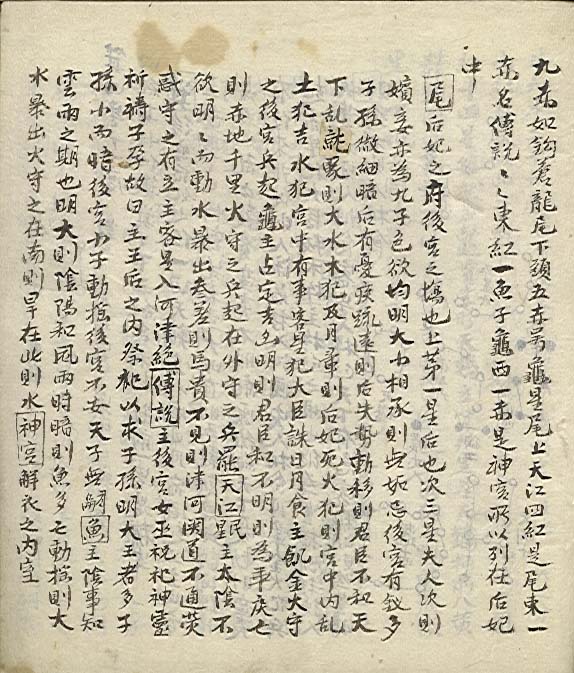 九赤如鈎蒼龍尾下頭五赤号龜星尾上天江四紅是尾東一
赤名傅說〻東紅一魚子龜西一赤是神宮所以列在后妃
中
尾后妃之府後宮之塲也上第一星后也次三星夫人次則
嬪妾亦為九子色欲均明大小相承則無妬忌後宮有敘多
子孫微細暗后有憂疾疏遠則后失勢動移則君臣不和天
下乱就聚則大水木犯及月暈則后妃死火犯則宮中内乱
土犯吉水犯宮中有事客星犯大臣誅日月食主飢金火守
之後宮兵起龜主占定吉凶明則君臣和不明則為乖戾七
則赤地千里火守之兵起在外守之兵罷天江民星主太陰不
欲明〻而動水暴出参差則馬貴不見則津河関道不通熒
惑守之有立主客星入河津絕傅說主後宮女巫祝祀神靈
祈禱子孕故曰主王后之内祭祀以求子孫明大王者多子
孫小而暗後宮少子動搖後宮不安天子無嗣魚主陰事知
雲雨之期也明大則陰陽和風雨時暗則魚多亡動搖則大
水暴出火守之在南則旱在北則水神宮解衣之内室